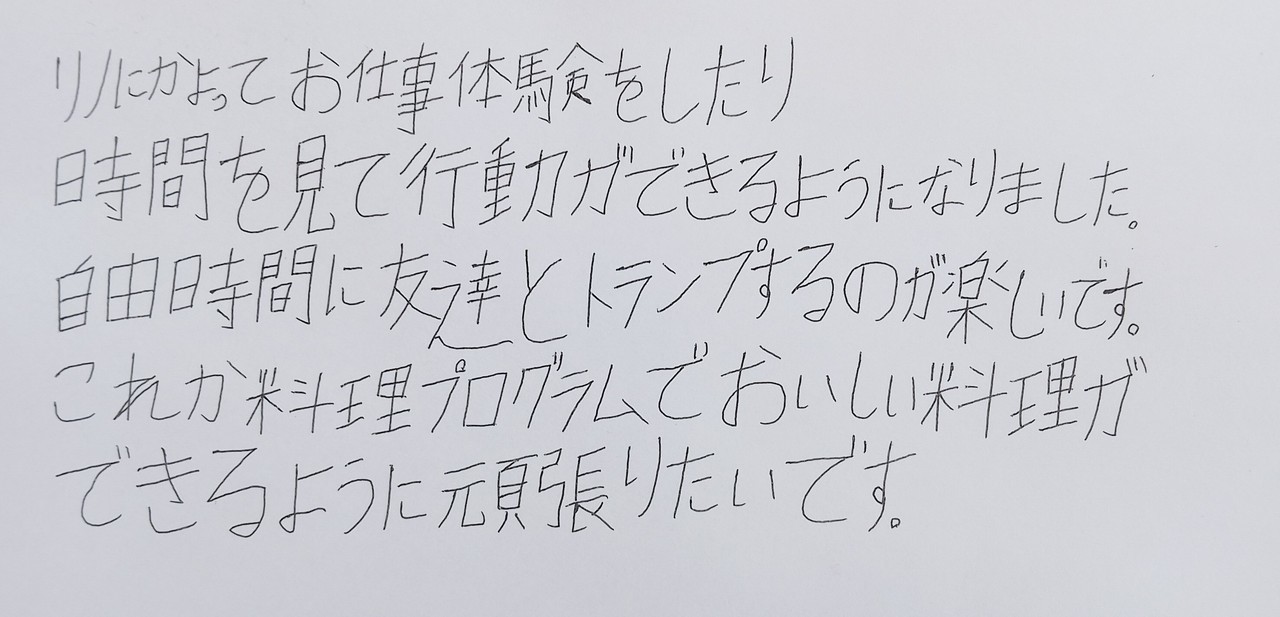 リノにかよってお仕事体験をしたり
時間を見て行動ができるようになりました。
自由時間に友達とトランプするのが楽しいです。
これか料理プログラムでおいしい料理が
できるように頑張りたいです。